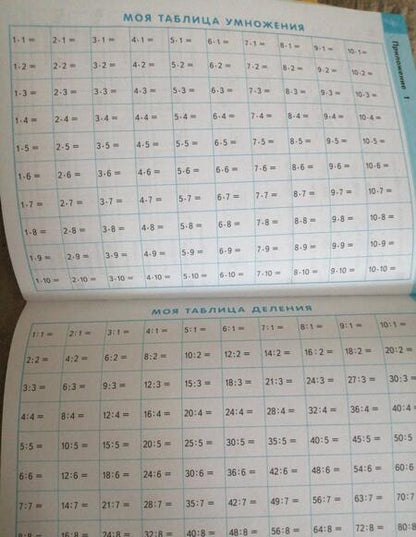 МОЯ ТАБЛИЦА УМНОЖЕНИЯ
Приложение 1
1·1= 2·1= 3·1= 4·1= 5·1= 6·1= 7·1= 8·1= 9·1= 10·1=
1·2= 2·2= 3·2= 4·2= 5·2= 6·2= 7·2= 8·2= 9·2= 10·2=
1·3= 2·3= 3·3= 4·3= 5·3= 6·3= 7·3= 8·3= 9·3= 10·3=
1·4= 2·4= 3·4= 4·4= 5·4= 6·4= 7·4= 8·4= 9·4= 10·4=
1·5= 2·5= 3·5= 4·5= 5·5= 6·5= 7·5= 8·5= 9·5= 10·5=
1·6= 2·6= 3·6= 4·6= 5·6= 6·6= 7·6= 8·6= 9·6= 10·6=
1·7= 2·7= 3·7= 4·7= 5·7= 6·7= 7·7= 8·7= 9·7= 10·7=
1·8= 2·8= 3·8= 4·8= 5·8= 6·8= 7·8= 8·8= 9·8= 10·8=
1·9= 2·9= 3·9= 4·9= 5·9= 6·9= 7·9= 8·9= 9·9= 10·9=
1·10= 2·10= 3·10= 4·10= 5·10= 6·10= 7·10= 8·10= 9·10= 10·10=
МОЯ ТАБЛИЦА ДЕЛЕНИЯ
1:1= 2:1= 3:1= 4:1= 5:1= 6:1= 7:1= 8:1= 9:1= 10:1=
2:2= 4:2= 6:2= 8:2= 10:2= 12:2= 14:2= 16:2= 18:2= 20:2=
3:3= 6:3= 9:3= 12:3= 15:3= 18:3= 21:3= 24:3= 27:3= 30:3=
4:4= 8:4= 12:4= 16:4= 20:4= 24:4= 28:4= 32:4= 36:4= 40:4
5:5= 10:5= 15:5= 20:5= 25:5= 30:5= 35:5= 40:5= 45:5= 50:5
6:6= 12:6= 18:6= 24:6= 30:6= 36:6= 42:6= 48:6= 54:6= 60:6
7:7= 14:7= 21:7= 28:7= 35:7= 42:7= 49:7= 56:7= 63:7= 70:7
8:8= 16:8= 24:8= 32:8= 40:8= 48:8= 56:8= 64:8= 72:8= 80:8